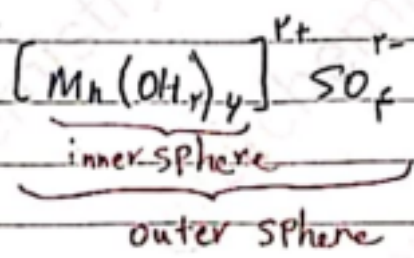 [Mn(OH۲)۶]۲+ SO۴۲-
inner sphere
outer sphere